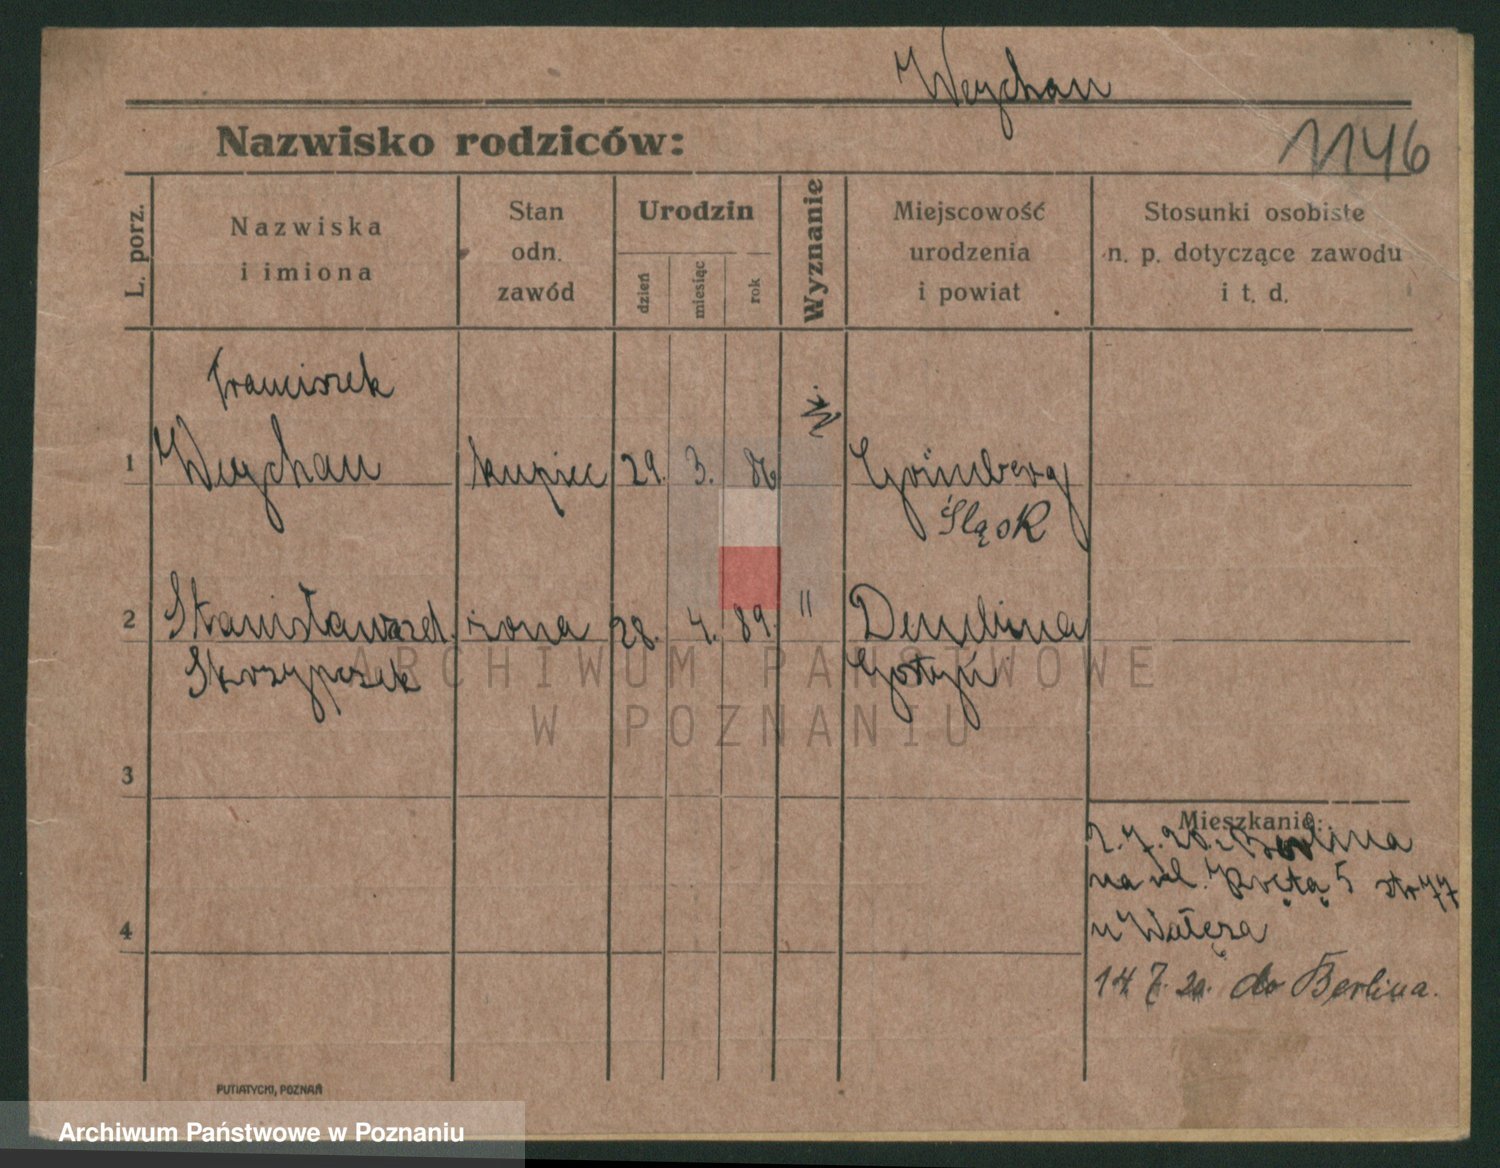 Weychan
Nazwisko rodziców:
1146
L. porz.
Nazwiska
i imiona
Stan
odn.
zawód
Urodzin
dzień
miesiąc
rok
Wyznanie
Miejscowość
urodzenia
i powiat
Stosunki osobiste
n. p. dotyczące zawodu
i t. d.
Franciszek
1 Weychan kupiec 29. 3. 86 Grünberg
Śląsk
2 Stanisława zd. żona 28. 4. 89. " Dembina
Skrzypczak Gostyń
ARCHIWUM PAŃSTWOWE
W POZNANIU
3
Mieszkanie:
2.7.20. z Berlina
na ul. Krętą 5 str 77
4
u Wałęsa
14 7. 20. do Berlina.
PUTIATYCKI, POZNAŃ
Archiwum Państwowe w Poznaniu